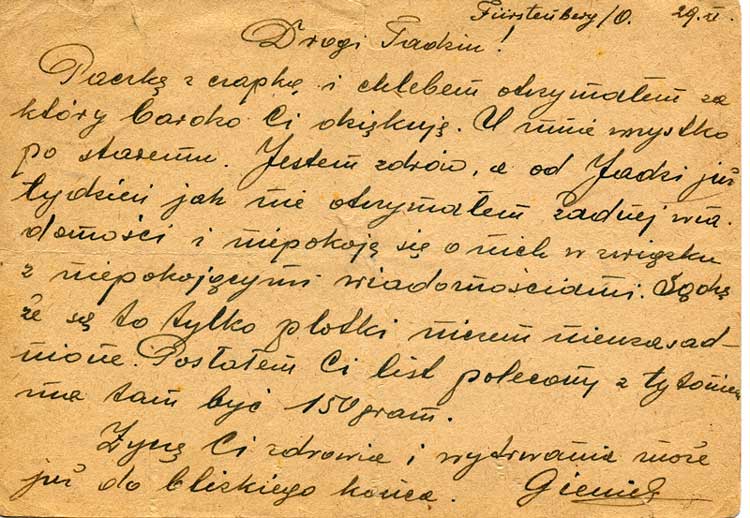 Fürstenberg/O. 29.XI.
Drogi Tadziu!
Paczkę z czapką i chlebem otrzymałem za
który bardzo Ci dziękuję. U mnie wszystko
po staremu. Jestem zdrów, a od Jadzi już
tydzień jak nie otrzymałem żadnej wia-
domości i niepokoję się o nich w związku
z niepokojącymi wiadomościami. Sądzę
że są to tylko plotki niczem nieuzasad-
nione. Posłałem Ci list polecony z tytoniem
ma tam być 150 gram.
Życzę Ci zdrowia i wytrwania może
już do bliskiego końca. Gieniek